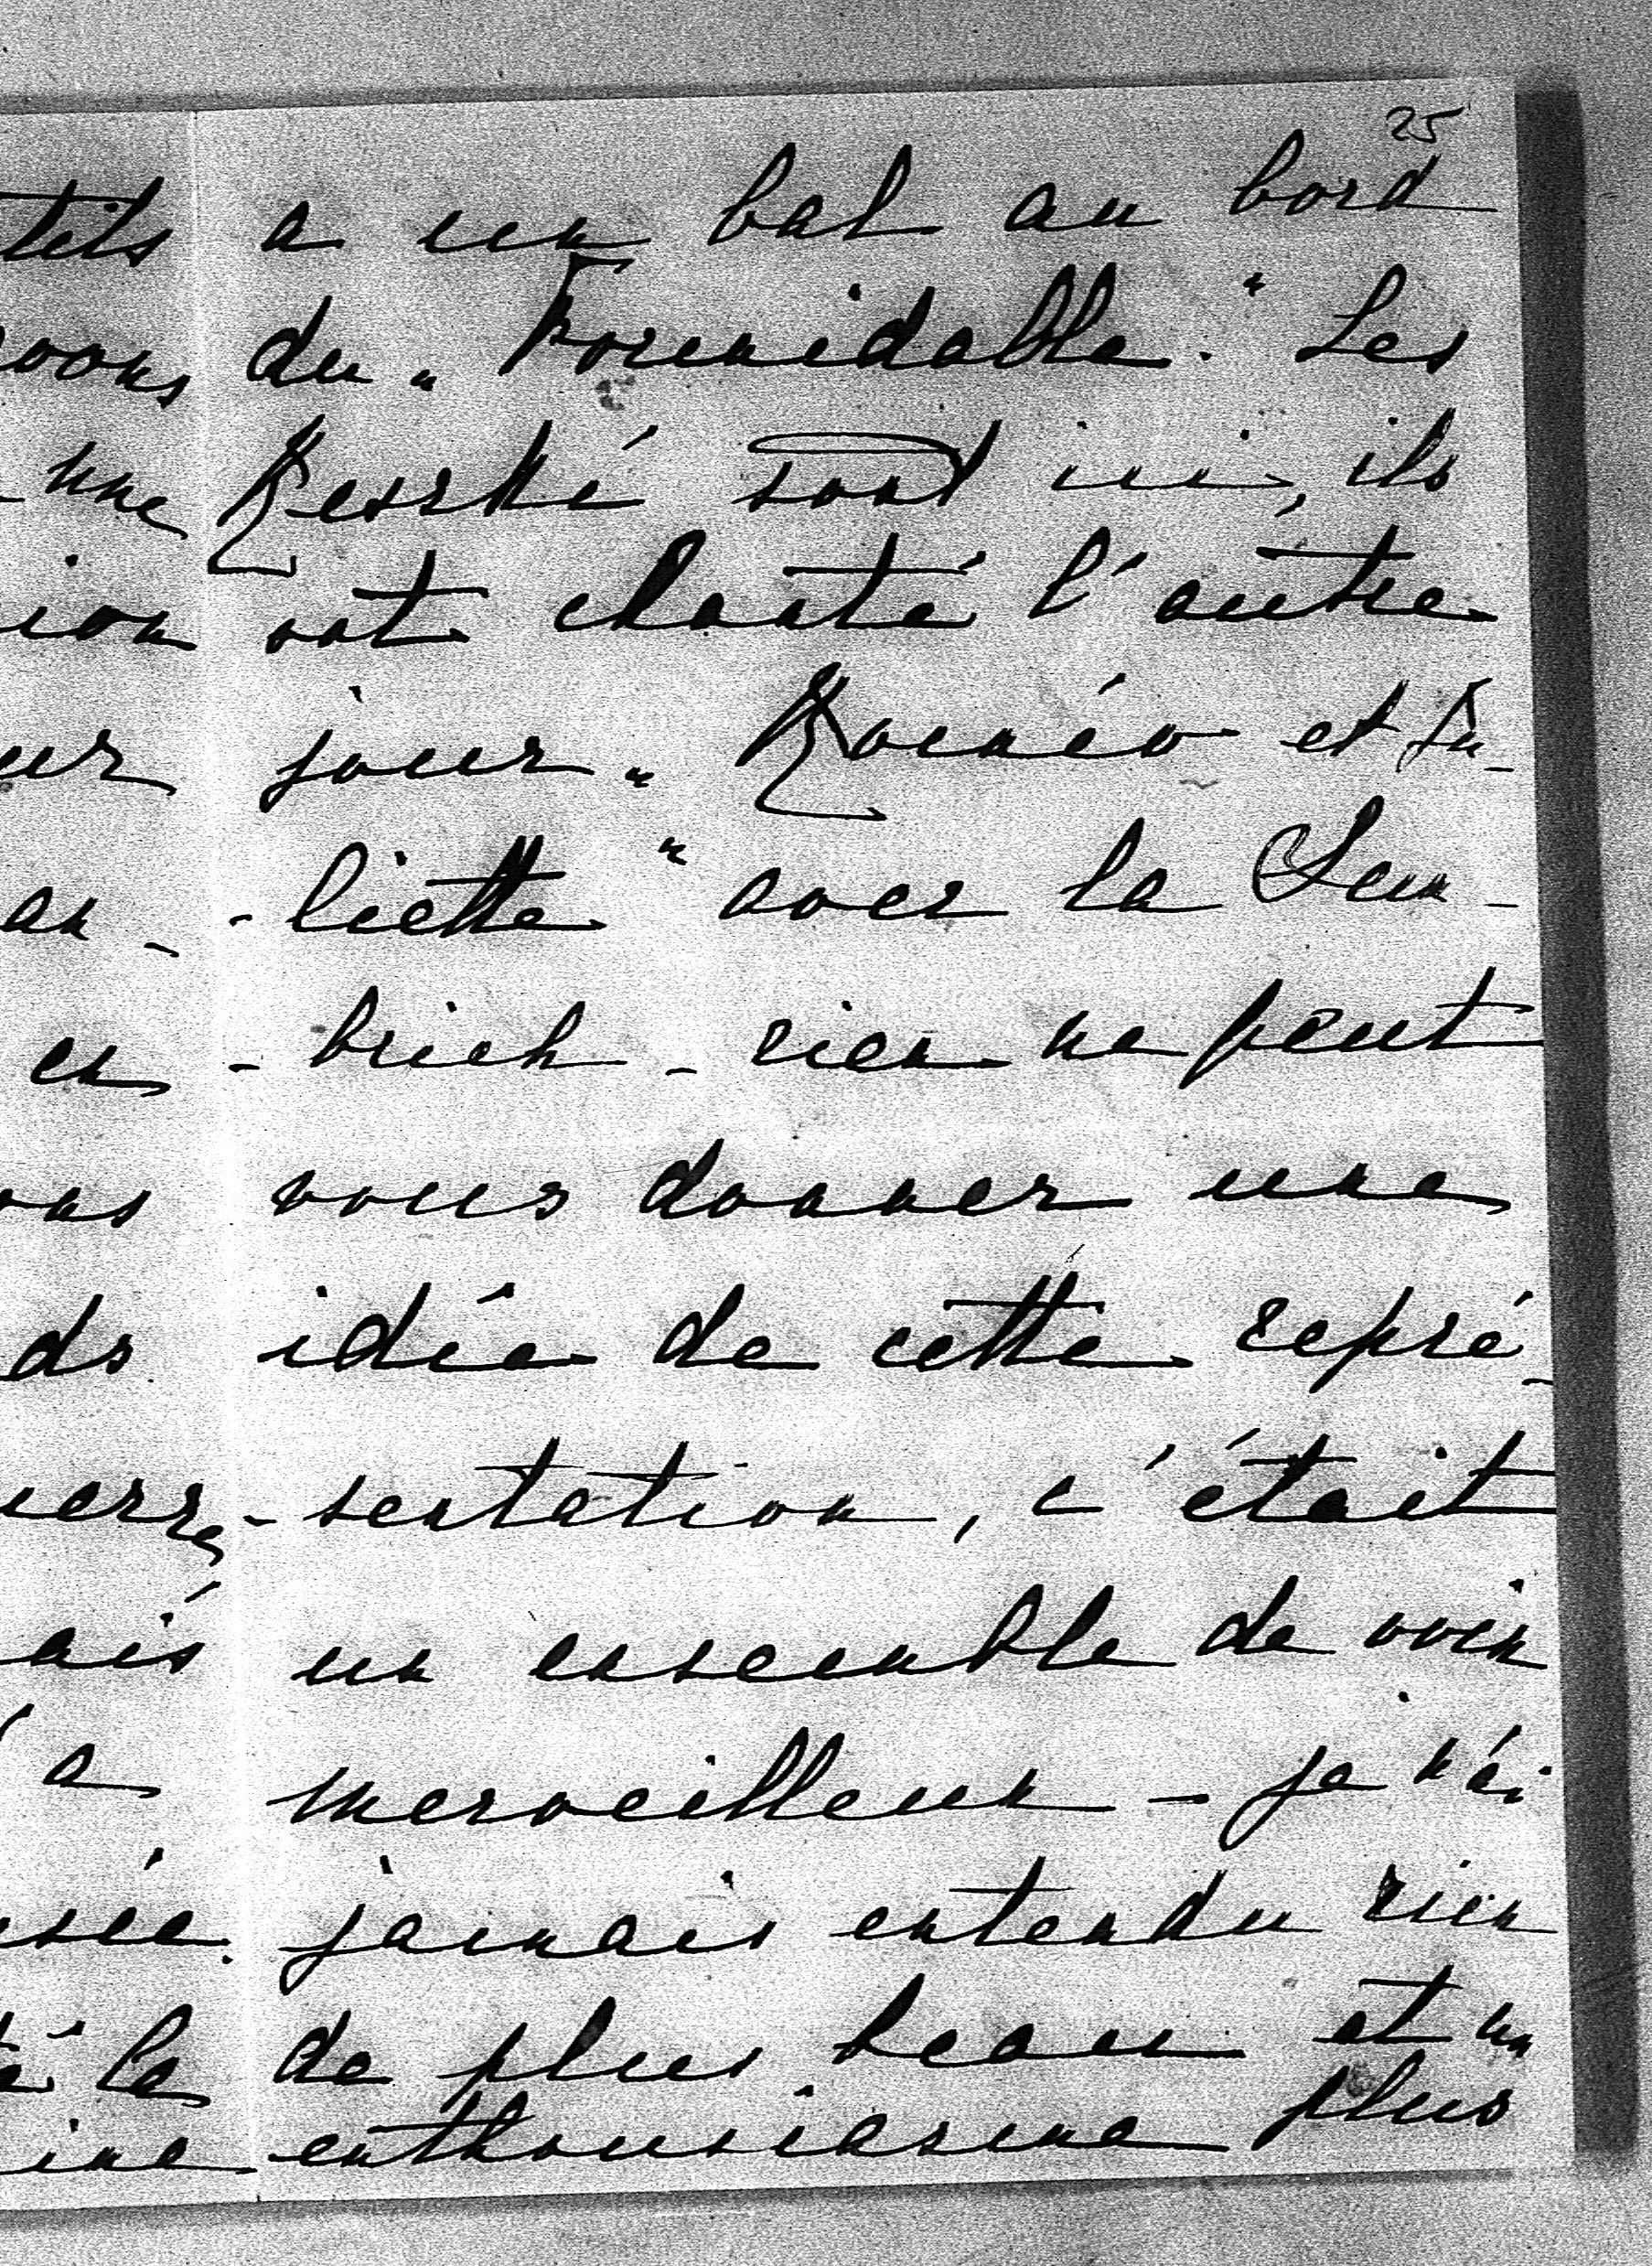 25
a un bal au bord
du „Formidable." Les
Reszké sont ici, ils
ont chanté l'autre
jour „Roméo et Ju-
-liette" avec la Sem-
-brich - rien ne peut
vous donner une
idée de cette repré-
-sentation, c'était
un ensemble de voix
merveilleux - je n'ai
jamais entendu rien
de plus beau et un
enthousiasme plus